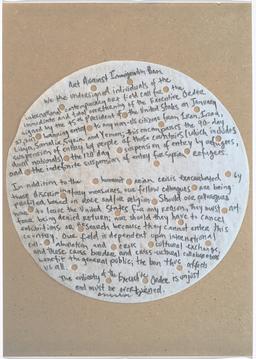 Act Against Immigration Ban
We the undersigned individuals of the
international interdisciplinary art field call for the
immediate and total overturning of the Executive Order
signed by the 45th President of the United States on January
27, 2017, banning entry to any non-US citizens from Iran, Iraq,
Libya, Somalia, Sudan and Yemen; this encompasses the 90-day
suspension of entry by people of those countries (which includes
dual nationals), the 120 day suspension of entry by refugees,
and the indefinite suspension of entry for Syrian refugees.
In addition to the humanitarian crisis exacerbated by
these discriminatory measures, our fellow colleagues are being
prohibited based on place and/or religion. Should our colleagues
have to leave the United States for any reason, they must
being denied return; and should they have to cancel
exhibitions or research because they cannot enter this
country. Our field is dependent upon international
collaboration and cultural exchange,
and these cross-border and cross-cultural collaborations
benefit the general public; the ban thus affects
us all.
The entirety of the Executive Order is unjust
and must be overturned.